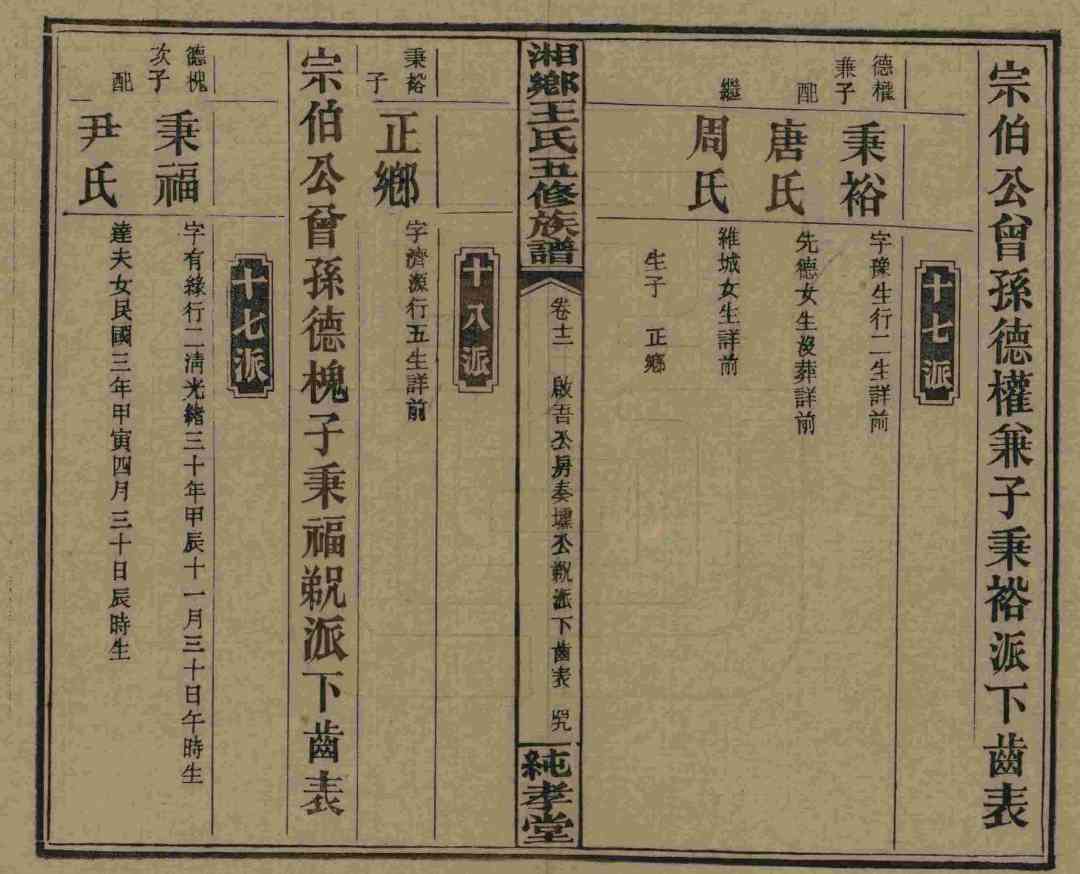 宗伯公曾孫德權兼子秉裕派下齒表
十七派
德權兼子
秉裕
字豫生行二生詳前
配
唐氏
先德女生沒葬詳前
繼
周氏
維城女生詳前
生子 正鄉
湘鄉王氏五修族譜
卷十二 啟吾公房奏壎公派下齒表
純孝堂
十八派
秉裕子
正鄉
字濟源行五生詳前
宗伯公曾孫德槐子秉福派下齒表
十七派
德槐次子
秉福
字有緣行二清光緒三十年甲辰十一月三十日午時生
配
尹氏
達夫女民國三年甲寅四月三十日辰時生